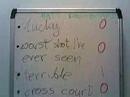 lucky 0
worst shot I've 0
ever seen
terrible 1
cross court 0